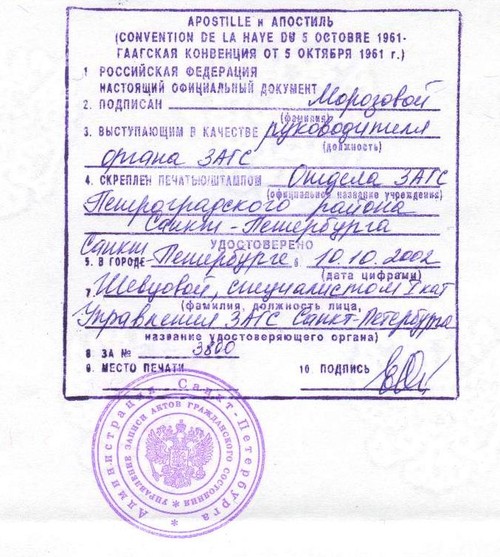 APOSTILLE и АПОСТИЛЬ
(CONVENTION DE LA HAYE DU 5 OCTOBRE 1961-
ГААГСКАЯ КОНВЕНЦИЯ ОТ 5 ОКТЯБРЯ 1961 г.)
1 РОССИЙСКАЯ ФЕДЕРАЦИЯ
НАСТОЯЩИЙ ОФИЦИАЛЬНЫЙ ДОКУМЕНТ
2. ПОДПИСАН Морозовой
(фамилия)
3. ВЫСТУПАЮЩИМ В КАЧЕСТВЕ руководителя
(должность)
органа ЗАГС
4. СКРЕПЛЕН ПЕЧАТЬЮ/ШТАМПОМ Отдела ЗАГС
(официальное название учреждения)
Петроградского района
Санкт-Петербурга
УДОСТОВЕРЕНО
Санкт
5. В ГОРОДЕ Петербурге 6. 10.10.2002
(дата цифрами)
7. Шевцовой, специалистом I кат
(фамилия, должность лица,
Управления ЗАГС Санкт-Петербурга
название удостоверяющего органа)
8. ЗА № 3800
9. МЕСТО ПЕЧАТИ 10. ПОДПИСЬ
Администрация Санкт-Петербурга
УПРАВЛЕНИЕ ЗАПИСИ АКТОВ ГРАЖДАНСКОГО СОСТОЯНИЯ